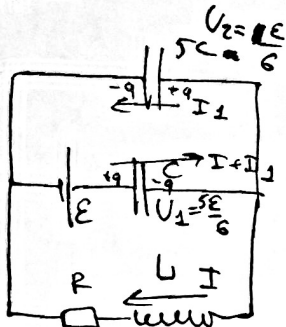 U2 = ε/6
5C
-q +q
I1
+q C I + I1
-q
ε U1 = 5ε/6
R L I